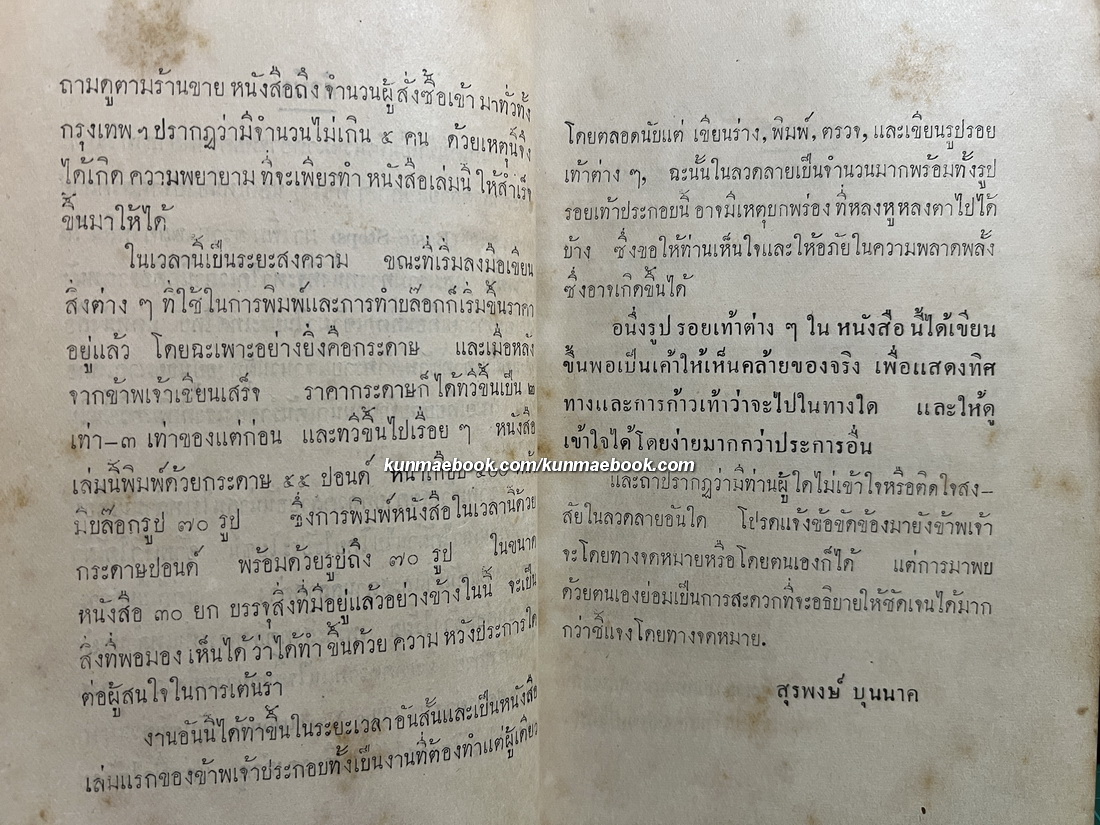 ถามดูตามร้านขาย หนังสือถึง จำนวนผู้ สั่งซื้อเข้า มาทั่วทั้ง
กรุงเทพ ฯ ปรากฏว่ามีจำนวนไม่เกิน ๕ คน ด้วยเหตุนี้จึง
ได้เกิด ความพยายาม ที่จะเพียรทำ หนังสือเล่มนี้ ให้สำเร็จ
ขึ้นมาให้ได้
ในเวลานี้เป็นระยะสงคราม ขณะที่เริ่มลงมือเขียน
สิ่งต่าง ๆ ที่ใช้ในการพิมพ์และการทำบล๊อกก็เริ่มขึ้นราคา
อยู่แล้ว โดยฉะเพาะอย่างยิ่งคือกระดาษ และเมื่อหลัง
จากข้าพเจ้าเขียนเสร็จ ราคากระดาษก็ ได้ทวีขึ้นเป็น ๒
เท่า-๓ เท่าของแต่ก่อน และทวีขึ้นไปเรื่อย ๆ หนังสือ
เล่มนี้พิมพ์ด้วยกระดาษ ๕๕ ปอนด์ หนาเกือบ
มีบล๊อกรูป ๗๐ รูป ซึ่งการพิมพ์หนังสือในเวลานี้ด้วย
กระดาษปอนด์ พร้อมด้วยรูปถึง ๗๐ รูป ในขนาด
หนังสือ ๓๐ ยก บรรจุสิ่งที่มีอยู่แล้วอย่างข้างในนี้ จะเป็น
สิ่งที่พอมอง เห็นได้ ว่าได้ทำ ขึ้นด้วย ความ หวังประการใด
ต่อผู้สนใจในการเต้นรำ
งานอันนี้ได้ทำขึ้นในระยะเวลาอันสั้นและเป็นหนังสือ
เล่มแรกของข้าพเจ้าประกอบทั้งเป็นงานที่ต้องทำแต่ผู้เดียว
โดยตลอดนับแต่ เขียนร่าง, พิมพ์, ตรวจ, และเขียนรูปรอย
เท้าต่าง ๆ, ฉะนั้นในลวดลายเป็นจำนวนมากพร้อมทั้งรูป
รอยเท้าประกอบนี้ อาจมีเหตุบกพร่อง ที่หลงหูหลงตาไปได้
บ้าง ซึ่งขอให้ท่านเห็นใจและให้อภัยในความพลาดพลั้ง
ซึ่งอาจเกิดขึ้นได้
อนึ่งรูป รอยเท้าต่าง ๆ ใน หนังสือ นี้ได้เขียน
ขึ้นพอเป็นเค้าให้เห็นคล้ายของจริง เพื่อแสดงทิศ
ทางและการก้าวเท้าว่าจะไปในทางใด และให้ดู
เข้าใจได้โดยง่ายมากกว่าประการอื่น
kunmaebook.com/kunmaebook.com
และถ้าปรากฏว่ามีท่านผู้ใดไม่เข้าใจหรือติดใจสง-
สัยในลวดลายอันใด โปรดแจ้งข้อขัดข้องมายังข้าพเจ้า
จะโดยทางจดหมายหรือโดยตนเองก็ได้ แต่การมาพบ
ด้วยตนเองย่อมเป็นการสะดวกที่จะอธิบายให้ชัดเจนได้มาก
กว่าชี้แจงโดยทางจดหมาย.
สุรพงษ์ บุนนาค